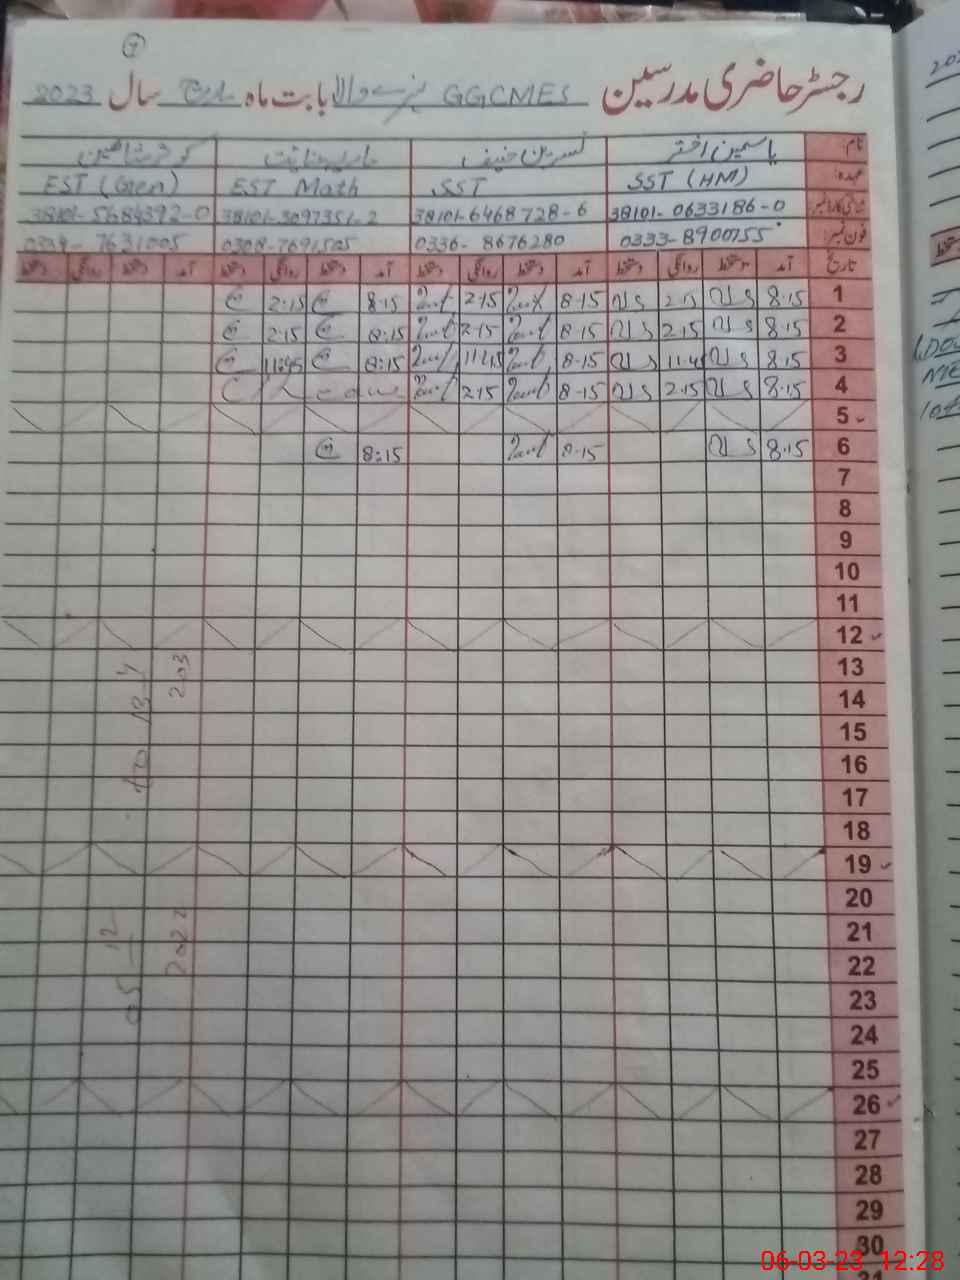 7
رجسٹر حاضری مدرسین GGCMES والا بابت ماہ مارچ سال 2023
نام یاسمین اختر نسرین حنیف کوثر شاہین
عہدہ SST (HM) SST EST Math EST (Gen)
شناختی کارڈ نمبر 38101-0633186-0 38101-6468728-6 38101-3097351-2 38101-5684392-0
فون نمبر: 0333-8900755 0336-8676280 0308-7691505 0334-7631005
تاریخ آمد دستخط روانگی دستخط آمد دستخط روانگی دستخط آمد دستخط روانگی دستخط آمد دستخط روانگی دستخط
1 8.15 2.15 8.15 2.15 8.15 2:15
2 8.15 2.15 8.15 2.15 8:15 2:15
3 8.15 11.45 8.15 11.45 8:15 11:45
4 8.15 2.15 8.15 2.15 Leave
5
6 8.15 8.15 8:15
7
8
9
10
11
12
13
14
15
16
17
18
19
20
21
22
23
24
25
26
27
28
29
30
31
203
to 13
05-12
2022
06-03-23 12:28